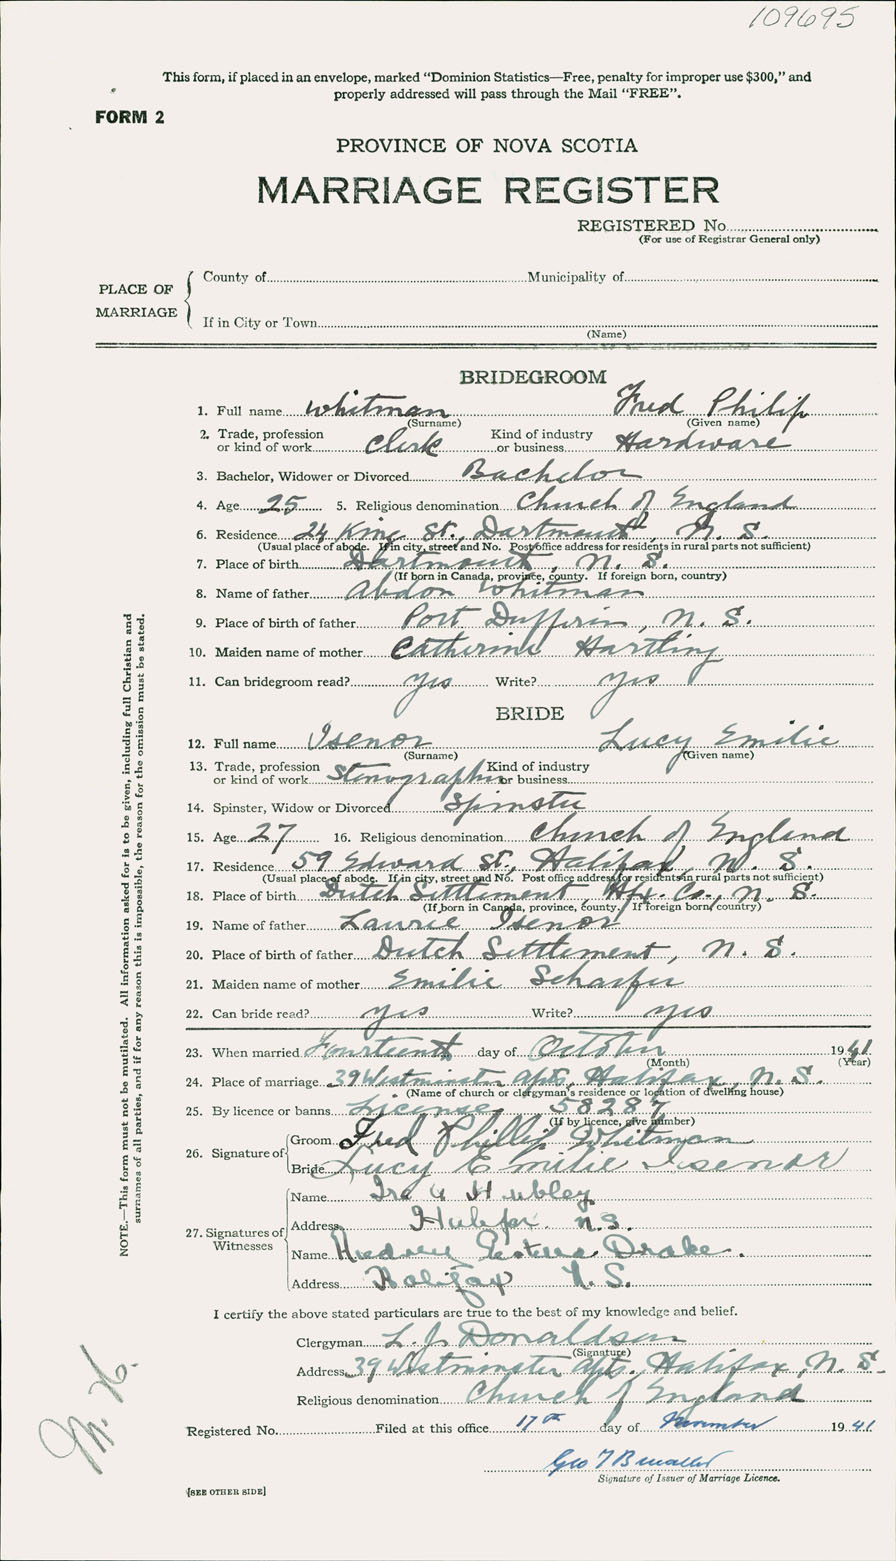 109695
This form, if placed in an envelope, marked “Dominion Statistics—Free, penalty for improper use $300,” and
properly addressed will pass through the Mail “FREE”.
FORM 2
PROVINCE OF NOVA SCOTIA
MARRIAGE REGISTER
REGISTERED No.
(For use of Registrar General only)
PLACE OF MARRIAGE
County of Municipality of
If in City or Town
(Name)
BRIDEGROOM
1. Full name Whitman Fred Philip
(Surname) (Given name)
2. Trade, profession or kind of work Clerk Kind of industry or business Hardware
3. Bachelor, Widower or Divorced Bachelor
4. Age 25 5. Religious denomination Church of England
6. Residence 24 King St., Dartmouth, N. S.
(Usual place of abode. If in city, street and No. Post office address for residents in rural parts not sufficient)
7. Place of birth Dartmouth, N. S.
(If born in Canada, province, county. If foreign born, country)
8. Name of father Abdon Whitman
9. Place of birth of father Port Dufferin, N. S.
10. Maiden name of mother Catherine Hartling
11. Can bridegroom read? Yes Write? Yes
BRIDE
12. Full name Isenor Lucy Emilie
(Surname) (Given name)
13. Trade, profession or kind of work Stenographer Kind of industry or business
14. Spinster, Widow or Divorced Spinster
15. Age 27 16. Religious denomination Church of England
17. Residence 59 Edward St., Halifax, N. S.
(Usual place of abode. If in city, street and No. Post office address for residents in rural parts not sufficient)
18. Place of birth Dutch Settlement, Hfx. Co., N. S.
(If born in Canada, province, county. If foreign born, country)
19. Name of father Laurie Isenor
20. Place of birth of father Dutch Settlement, N. S.
21. Maiden name of mother Emilie
22. Can bride read? yes Write? yes
23. When married Fourteenth day of October 1941
(Month) (Year)
24. Place of marriage 39 Westminster Apts, Halifax, N. S.
(Name of church or clergyman's residence or location of dwelling house)
25. By licence or banns License 58287
(If by licence, give number)
26. Signature of
Groom Fred Phillip Whitman
Bride Lucy Emilie Isenor
27. Signatures of Witnesses
Name Ira Hubley
Address Halifax N.S.
Name Audrey Drake.
Address Halifax N. S.
I certify the above stated particulars are true to the best of my knowledge and belief.
Clergyman L. J. Donaldson
(Signature)
Address 39 Westminster Apts. Halifax, N. S.
Religious denomination Church of England
Registered No. Filed at this office 17th day of November 1941
Geo
Signature of Issuer of Marriage Licence.
[SEE OTHER SIDE]
NOTE.—This form must not be mutilated. All information asked for is to be given, including full Christian and
surnames of all parties, and if for any reason this is impossible, the reason for the omission must be stated.